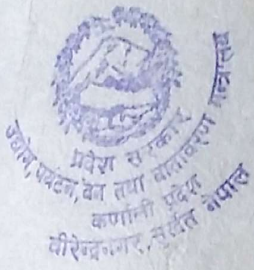 प्रदेश सरकार
उद्योग, पर्यटन, वन तथा वातावरण मन्त्रालय
कर्णाली प्रदेश
वीरेन्द्रनगर, सुर्खेत नेपाल